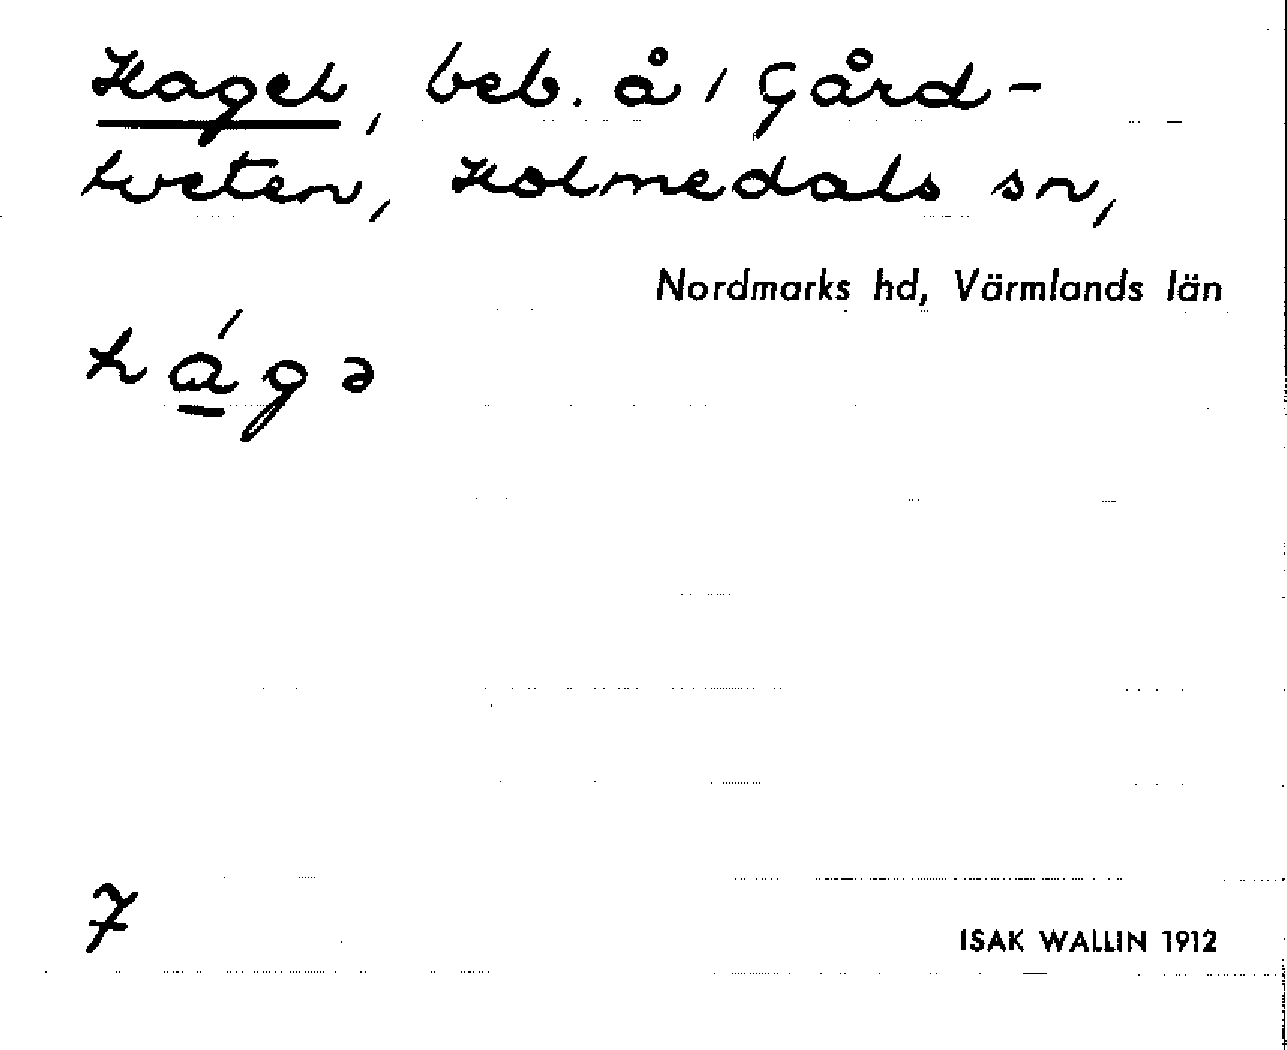 Haget, beb. å / Gård-
tveten, Holmedals sn,
Nordmarks hd, Värmlands län
há̲gə
7
ISAK WALLIN 1912